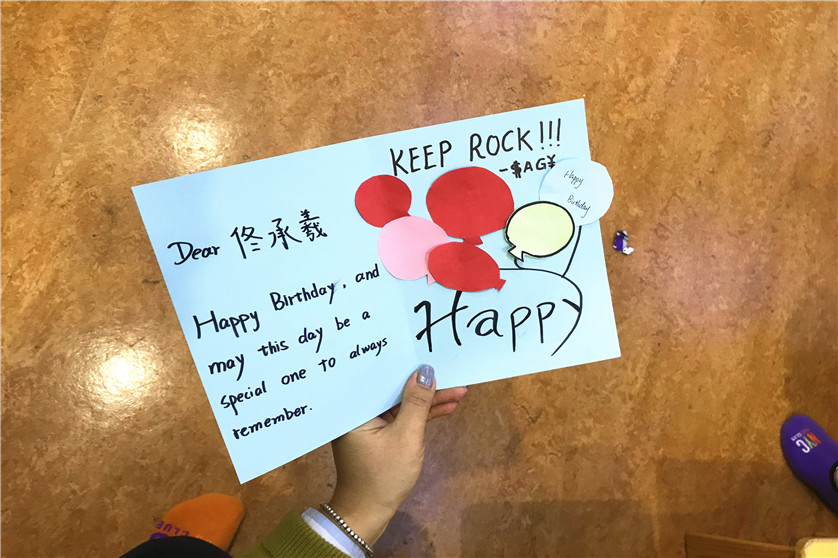 KEEP ROCK!!!
-$AG¥
Happy
Birthday
Happy
Dear 佟承義
Happy Birthday, and
may this day be a
special one to always
remember.